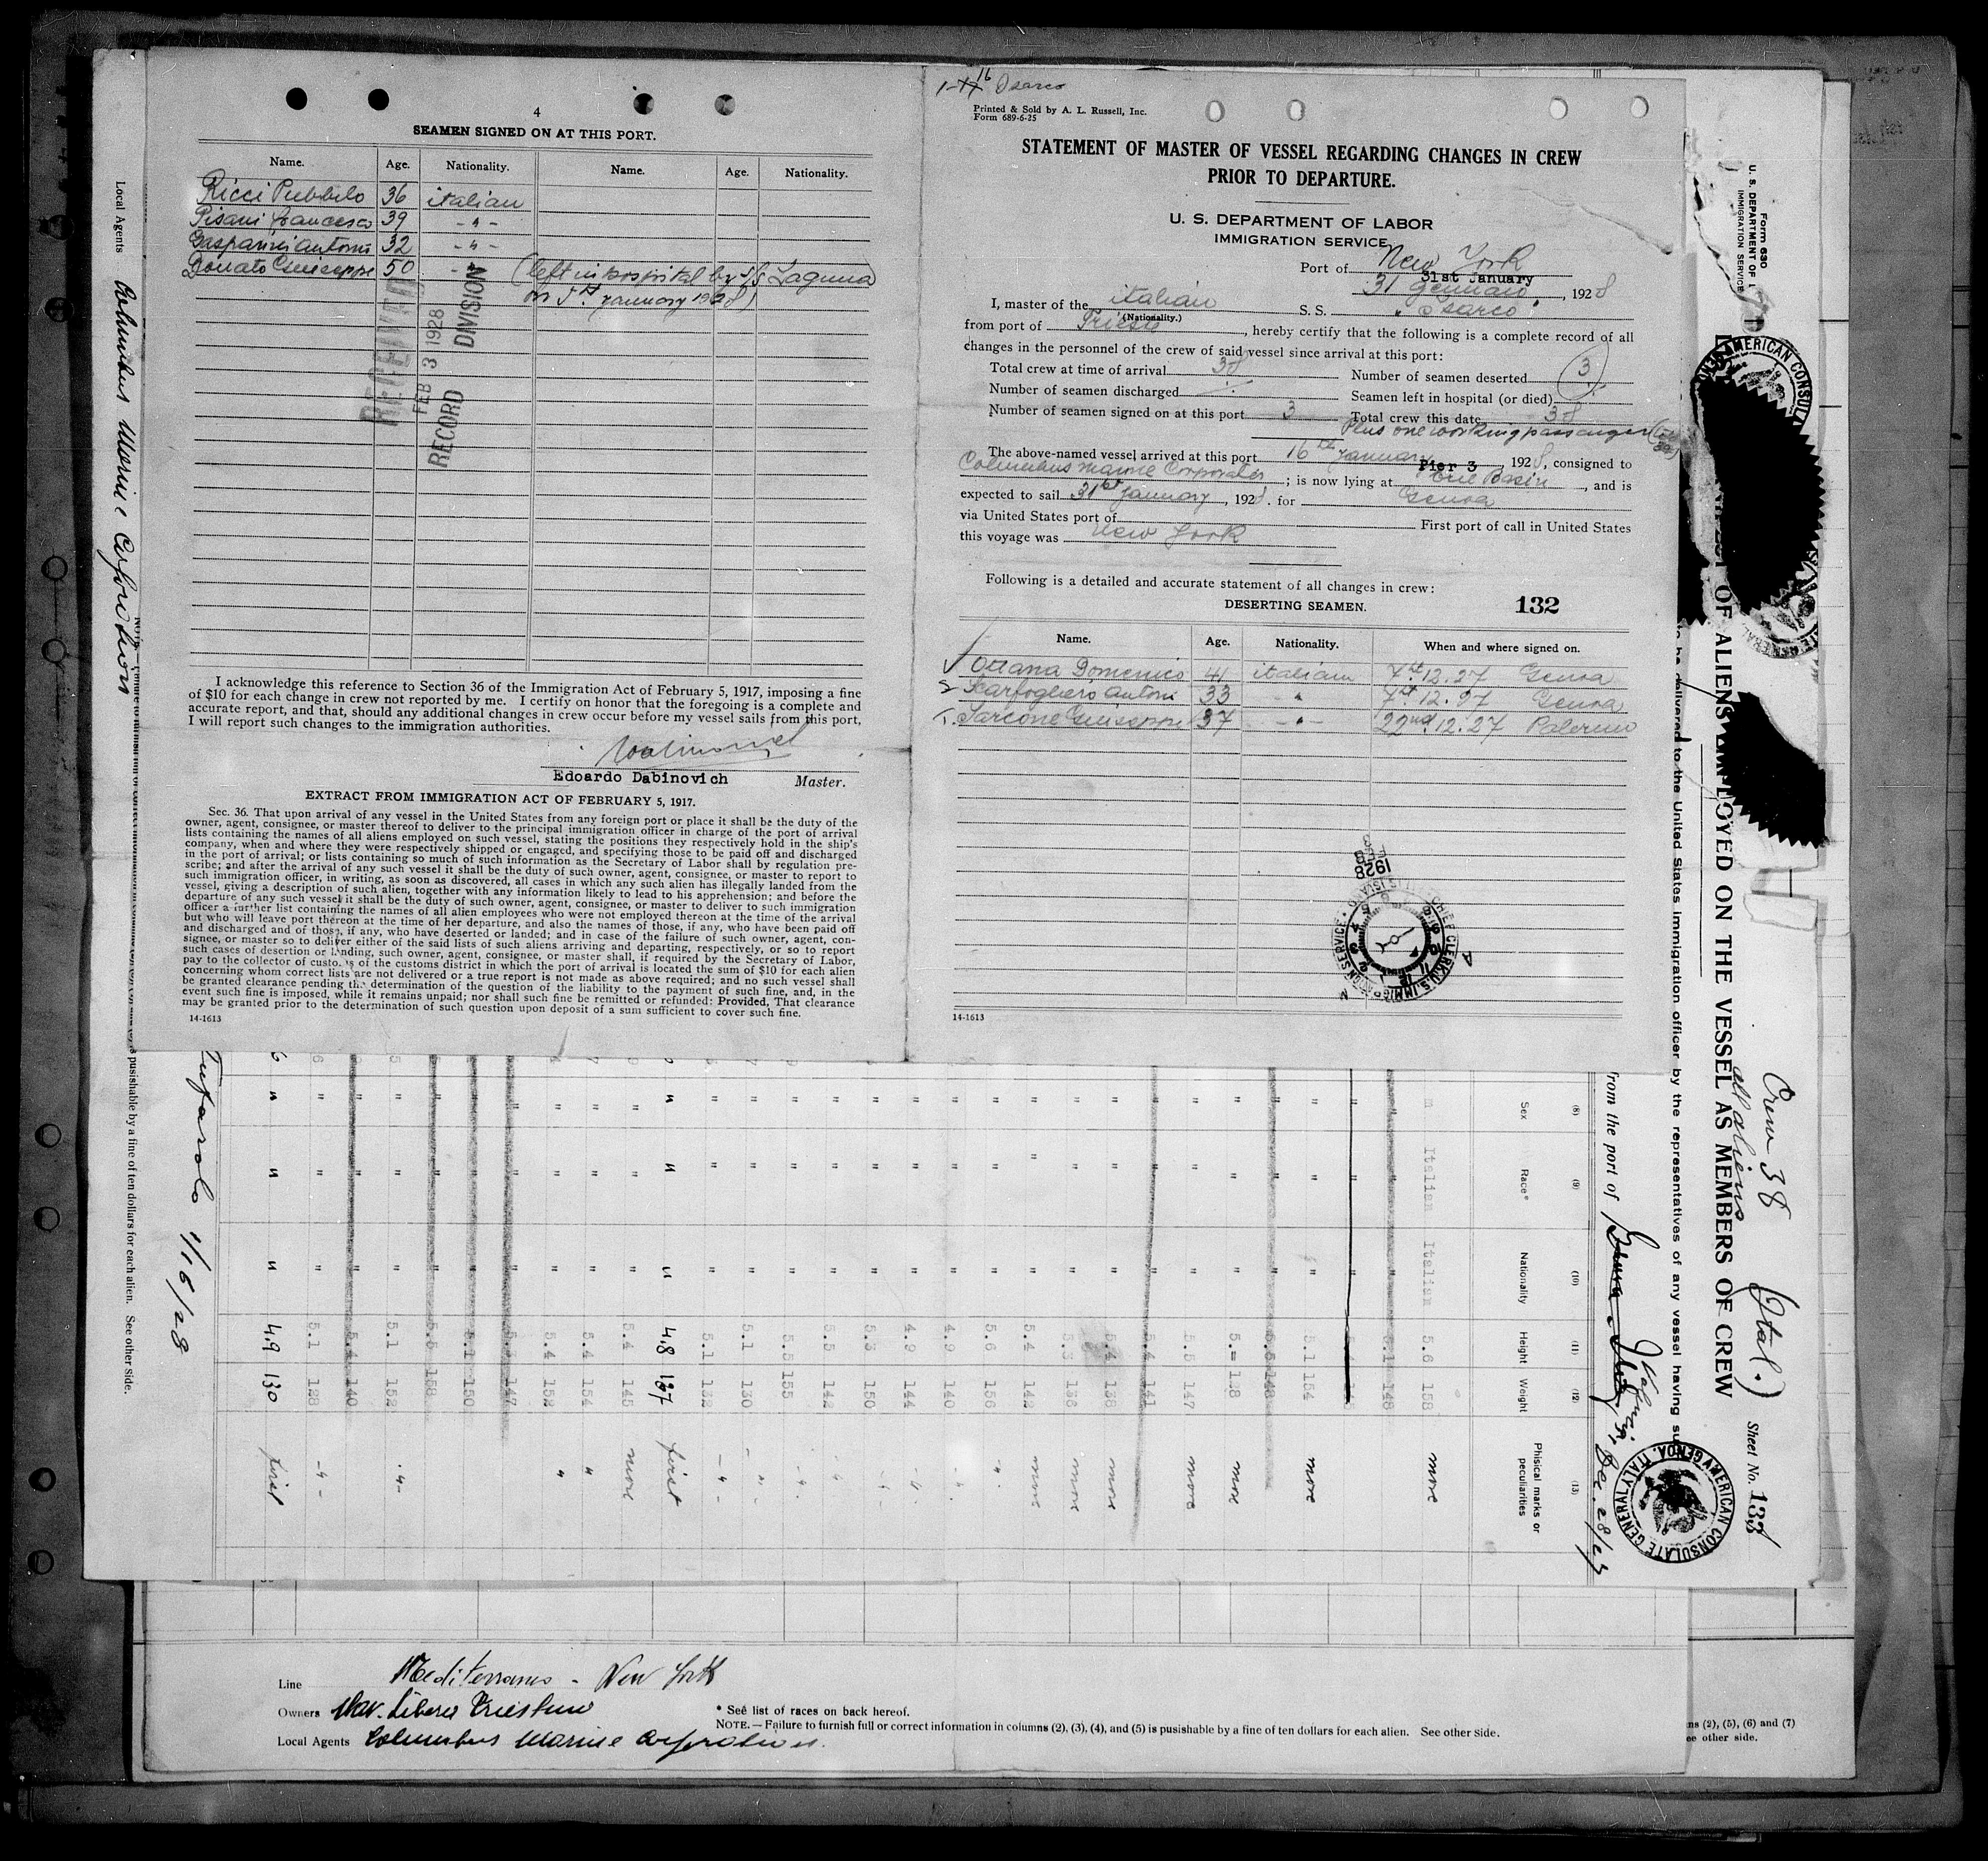 4
SEAMEN SIGNED ON AT THIS PORT.
Name. Age. Nationality. Name. Age. Nationality.
Ricci Pubbilo 36 italian
Pisani Francesco 39 - " -
Gasparini Antoni 32 - " -
Donato Giuseppe 50 - " - (left in hospital by S/S Laguna
on 5th January 1928)
RECEIVED
FEB 3 1928
RECORD DIVISION
I acknowledge this reference to Section 36 of the Immigration Act of February 5, 1917, imposing a fine
of $10 for each change in crew not reported by me. I certify on honor that the foregoing is a complete and
accurate report, and that, should any additional changes in crew occur before my vessel sails from this port,
I will report such changes to the immigration authorities.
Edoardo Dabinovich Master.
EXTRACT FROM IMMIGRATION ACT OF FEBRUARY 5, 1917.
Sec. 36. That upon arrival of any vessel in the United States from any foreign port or place it shall be the duty of the
owner, agent, consignee, or master thereof to deliver to the principal immigration officer in charge of the port of arrival
lists containing the names of all aliens employed on such vessel, stating the positions they respectively hold in the ship's
company, when and where they were respectively shipped or engaged, and specifying those to be paid off and discharged
in the port of arrival; or lists containing so much of such information as the Secretary of Labor shall by regulation pre-
scribe; and after the arrival of any such vessel it shall be the duty of such owner, agent, consignee, or master to report to
such immigration officer, in writing, as soon as discovered, all cases in which any such alien has illegally landed from the
vessel, giving a description of such alien, together with any information likely to lead to his apprehension; and before the
departure of any such vessel it shall be the duty of such owner, agent, consignee, or master to deliver to such immigration
officer a further list containing the names of all alien employees who were not employed thereon at the time of the arrival
but who will leave port thereon at the time of her departure, and also the names of those, if any, who have been paid off
and discharged and of those, if any, who have deserted or landed; and in case of the failure of such owner, agent, con-
signee, or master so to deliver either of the said lists of such aliens arriving and departing, respectively, or so to report
such cases of desertion or landing, such owner, agent, consignee, or master shall, if required by the Secretary of Labor,
pay to the collector of customs of the customs district in which the port of arrival is located the sum of $10 for each alien
concerning whom correct lists are not delivered or a true report is not made as above required; and no such vessel shall
be granted clearance pending the determination of the question of the liability to the payment of such fine, and, in the
event such fine is imposed, while it remains unpaid; nor shall such fine be remitted or refunded: Provided, That clearance
may be granted prior to the determination of such question upon deposit of a sum sufficient to cover such fine.
14-1613
1-16 Isarco
Printed & Sold by A. L. Russell, Inc.
Form 689-6-25
STATEMENT OF MASTER OF VESSEL REGARDING CHANGES IN CREW
PRIOR TO DEPARTURE.
U. S. DEPARTMENT OF LABOR
IMMIGRATION SERVICE
Port of New York
31st January
31 Gennaio, 1928
I, master of the italian S. S. " Isarco "
(Nationality.)
from port of Trieste, hereby certify that the following is a complete record of all
changes in the personnel of the crew of said vessel since arrival at this port:
Total crew at time of arrival 38 Number of seamen deserted 3
Number of seamen discharged Seamen left in hospital (or died)
Number of seamen signed on at this port 3 Total crew this date 38
Plus one working passenger
The above-named vessel arrived at this port 16th January, 1928, consigned to
Pier 3
Columbus Marine Corporation; is now lying at Erie Basin, and is
expected to sail 31st January, 1928. for Genoa
via United States port of First port of call in United States
this voyage was New York
Following is a detailed and accurate statement of all changes in crew:
DESERTING SEAMEN. 132
Name. Age. Nationality. When and where signed on.
Ottana Domenico 41 italian 7th 12.27 Genoa
Scarfogliero Antoni 33 " 7th 12.27 Genoa
Sarcone Giuseppe 37 - " - 22nd 12.27 Palermo
FEB 3
1928
CHIEF CLERK U.S. IMMIGRATION SERVICE
14-1613
Form 630
U. S. DEPARTMENT OF L
IMMIGRATION SERVICE
AMERICAN CONSUL
OF ALIENS EMPLOYED ON THE VESSEL AS MEMBERS OF CREW
to be delivered to the United States immigration officer by the representatives of any vessel having su
Crew 38
all aliens
(Ital.)
Sheet No. 133
from the port of Dec. 28/27
AMERICAN CONSULATE GENERAL GENOA, ITALY
(8) (9) (10) (11) (12) (13)
Sex Race* Nationality Height Weight Phisical marks or peculiarities
m Italian Italian 5.6 158 more
" " " 5.1 148
" " " 5.1 154 more
" " " 5.5 148
" " " 5.- 128 more
" " " 5.5 147 more
" " " 5.4 141
" " " 5.4 138 more
" " " 5.3 136 more
" " " 5.4 142 more
" " " 5.6 156 "
" " " 4.9 140 "
" " " 4.9 144 "
" " " 5.3 150 "
" " " 5.5 142 "
" " " 5.5 155 "
" " " 5.1 130 "
" " " 5.1 132 "
" " " 4.8 137 first
" " " 5.4 145 more
" " " 5.4 154 "
" " " 5.4 152 "
" " " 5.3 147
" " " 5.1 150
" " " 5.5 158
" " " 5.1 152 "
" " " 5.4 140
" " " 5.1 128 "
" " " 4.9 130 first
1/16/28
Local Agents Columbus Marine Corporation
is pusishable by a fine of ten dollars for each alien. See other side.
Line Mediterraneo - New York
Owners Nav. Libera Triestina
* See list of races on back hereof.
NOTE.—Failure to furnish full or correct information in columns (2), (3), (4), and (5) is pusishable by a fine of ten dollars for each alien. See other side.
Local Agents Columbus Marine Corporation.
ns (2), (5), (6) and (7)
ee other side.